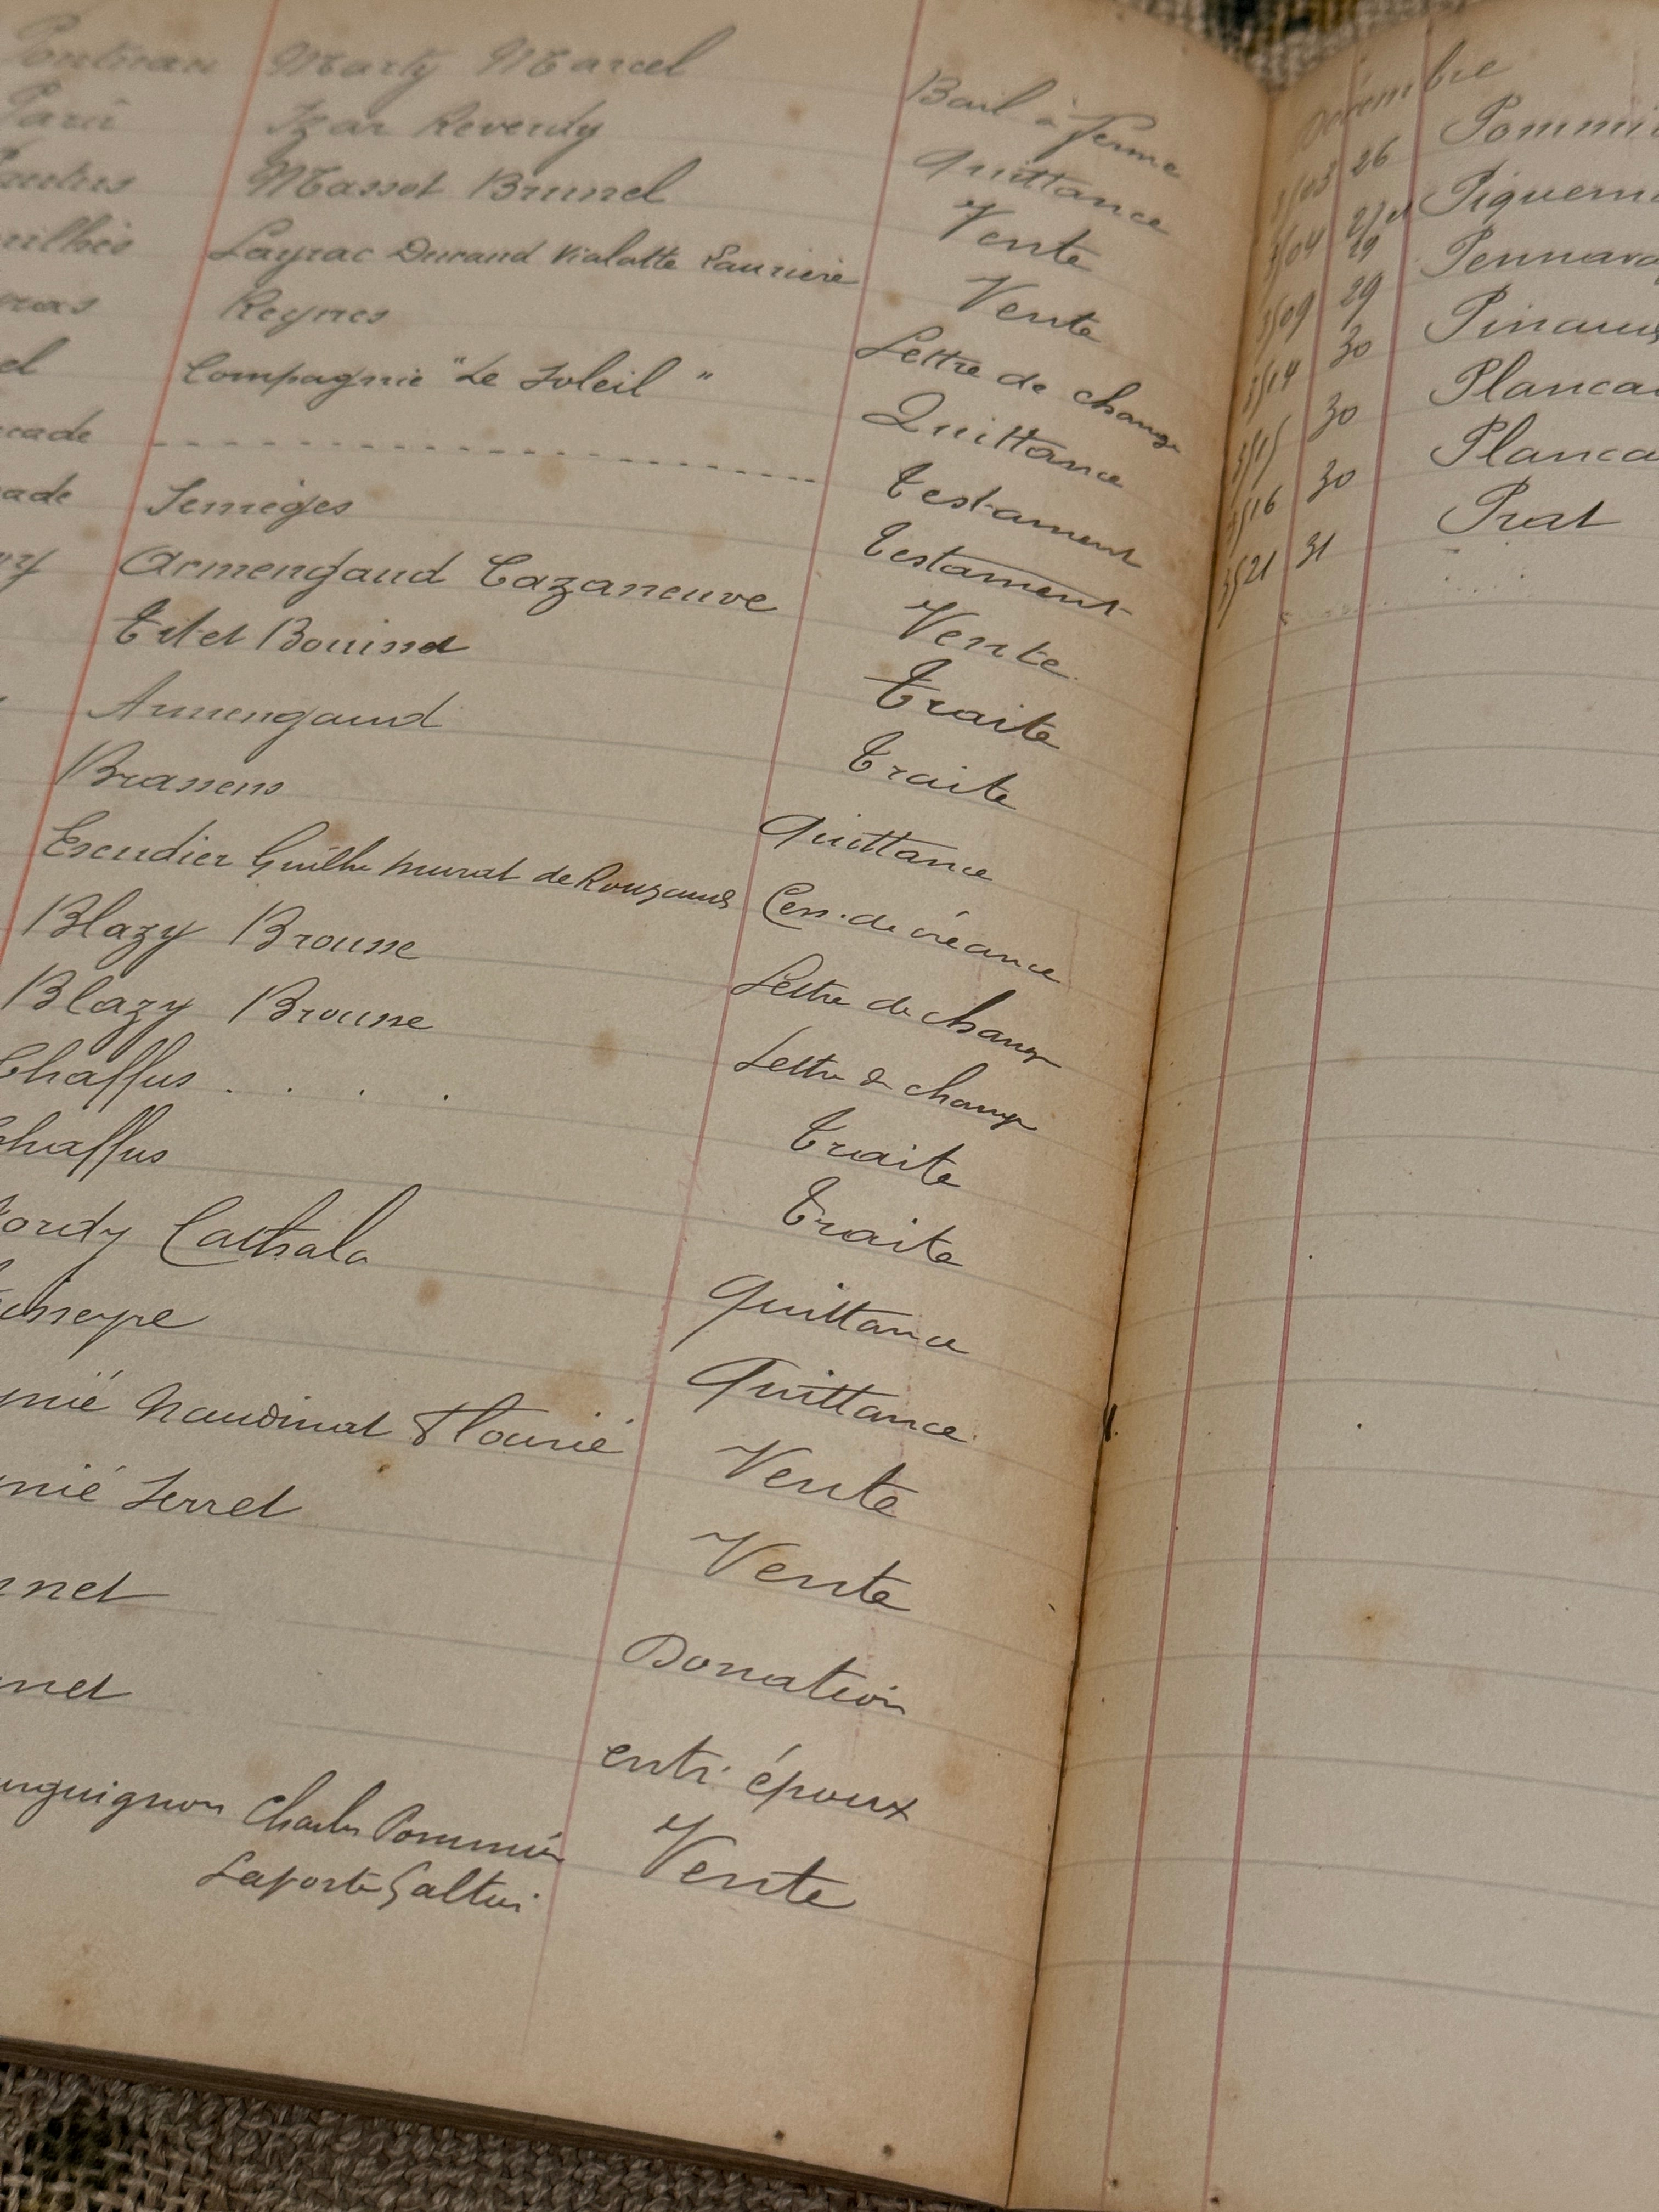 Marty Marcel Bail à ferme
Izar Reverdy quittance
Massot Brunel Vente
Layrac Durand Vialatte Vente
Reynes Lettre de change
Compagnie "Le Soleil" Quittance
cade testament
ade Semèges testament
Armengaud Cazaneuve Vente
Titet Bouisset traite
Armengaud traite
Brassens quittance
Escudier Guilhe Murat de Rouzaud Cess. de créance
Blazy Brousse Lettre de change
Blazy Brousse Lettre de change
Chaffus traite
Chaffus traite
ordy Cathala quittance
quittance
nié Naudinat Flourié Vente
nié Serret Vente
net Donation
net entre époux
urguignon Charles Pommiès Vente
Laporte Galtier
Décembre
3503 26 Pommi
3504 Piquem
3509 29 Pennava
3514 30 Pinaud
3515 30 Planca
3516 30 Planca
3521 31 Prat